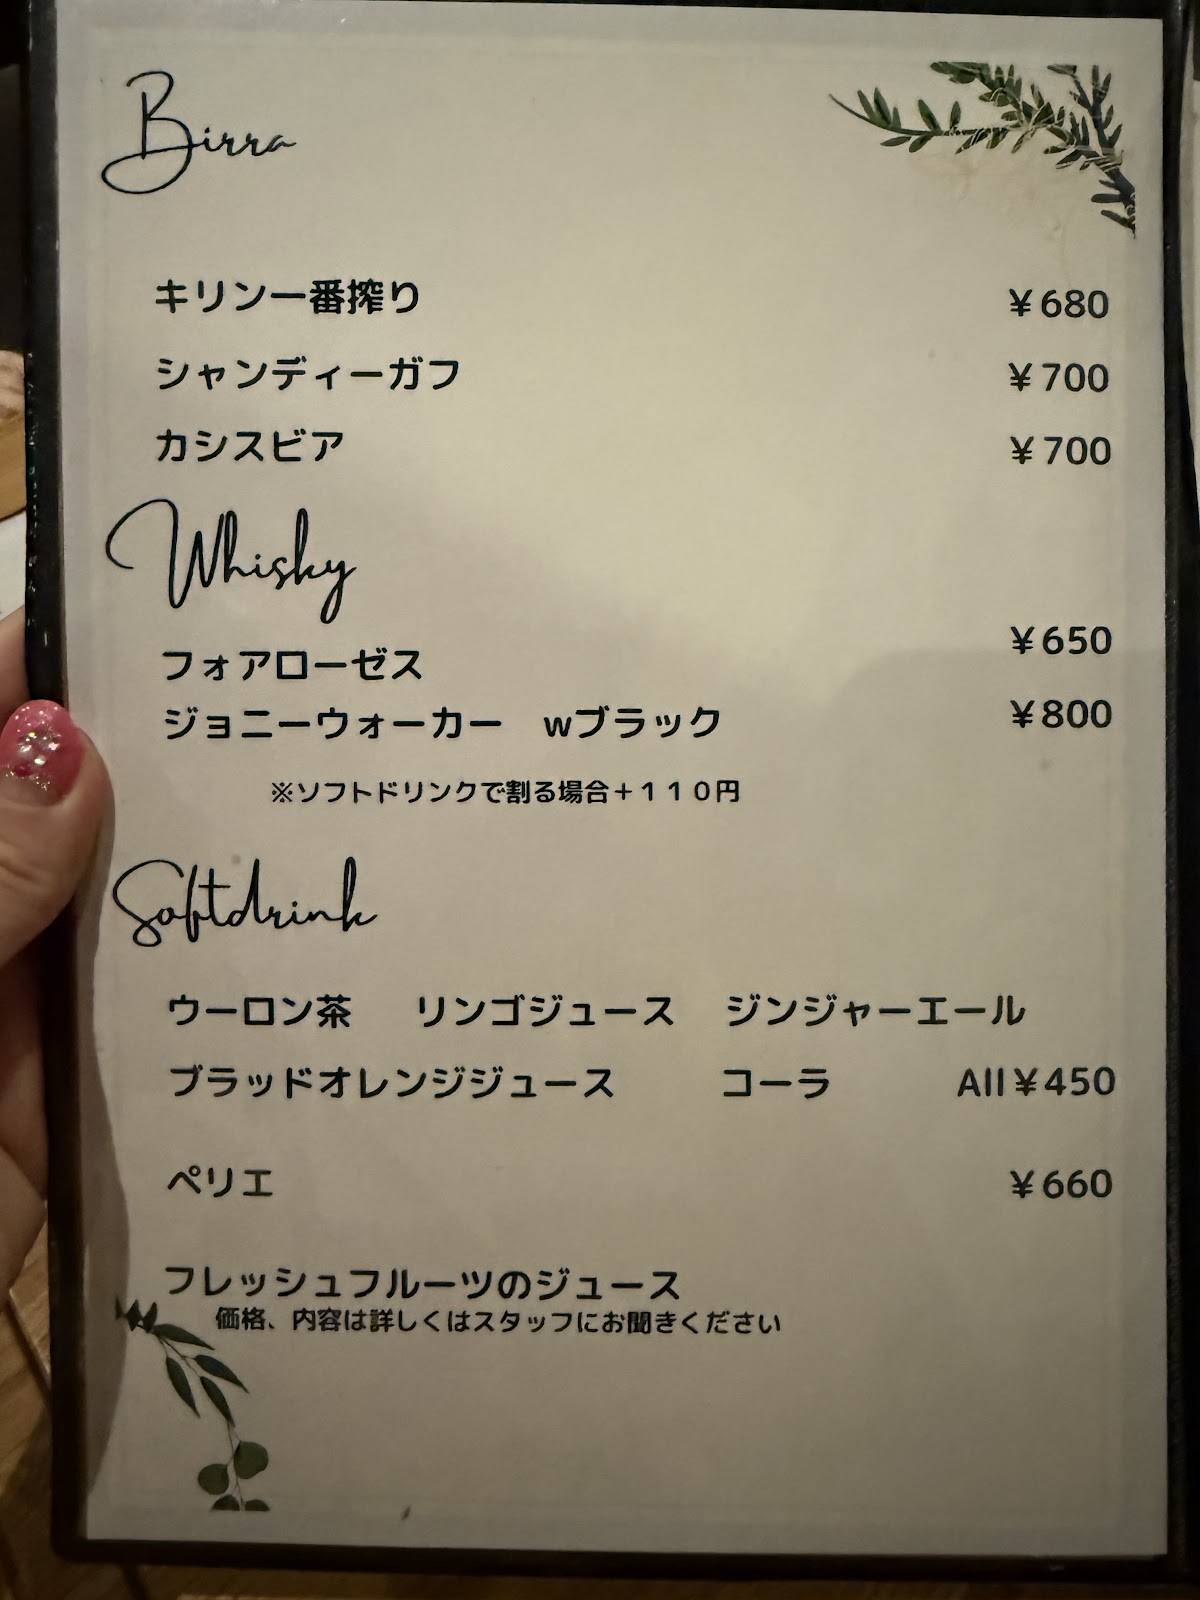 Birra
キリン一番搾り ¥680
シャンディーガフ ¥700
カシスビア ¥700
Whisky
フォアローゼス ¥650
ジョニーウォーカー wブラック ¥800
※ソフトドリンクで割る場合+110円
Softdrink
ウーロン茶 リンゴジュース ジンジャーエール
ブラッドオレンジジュース コーラ All¥450
ペリエ ¥660
フレッシュフルーツのジュース
価格、内容は詳しくはスタッフにお聞きください